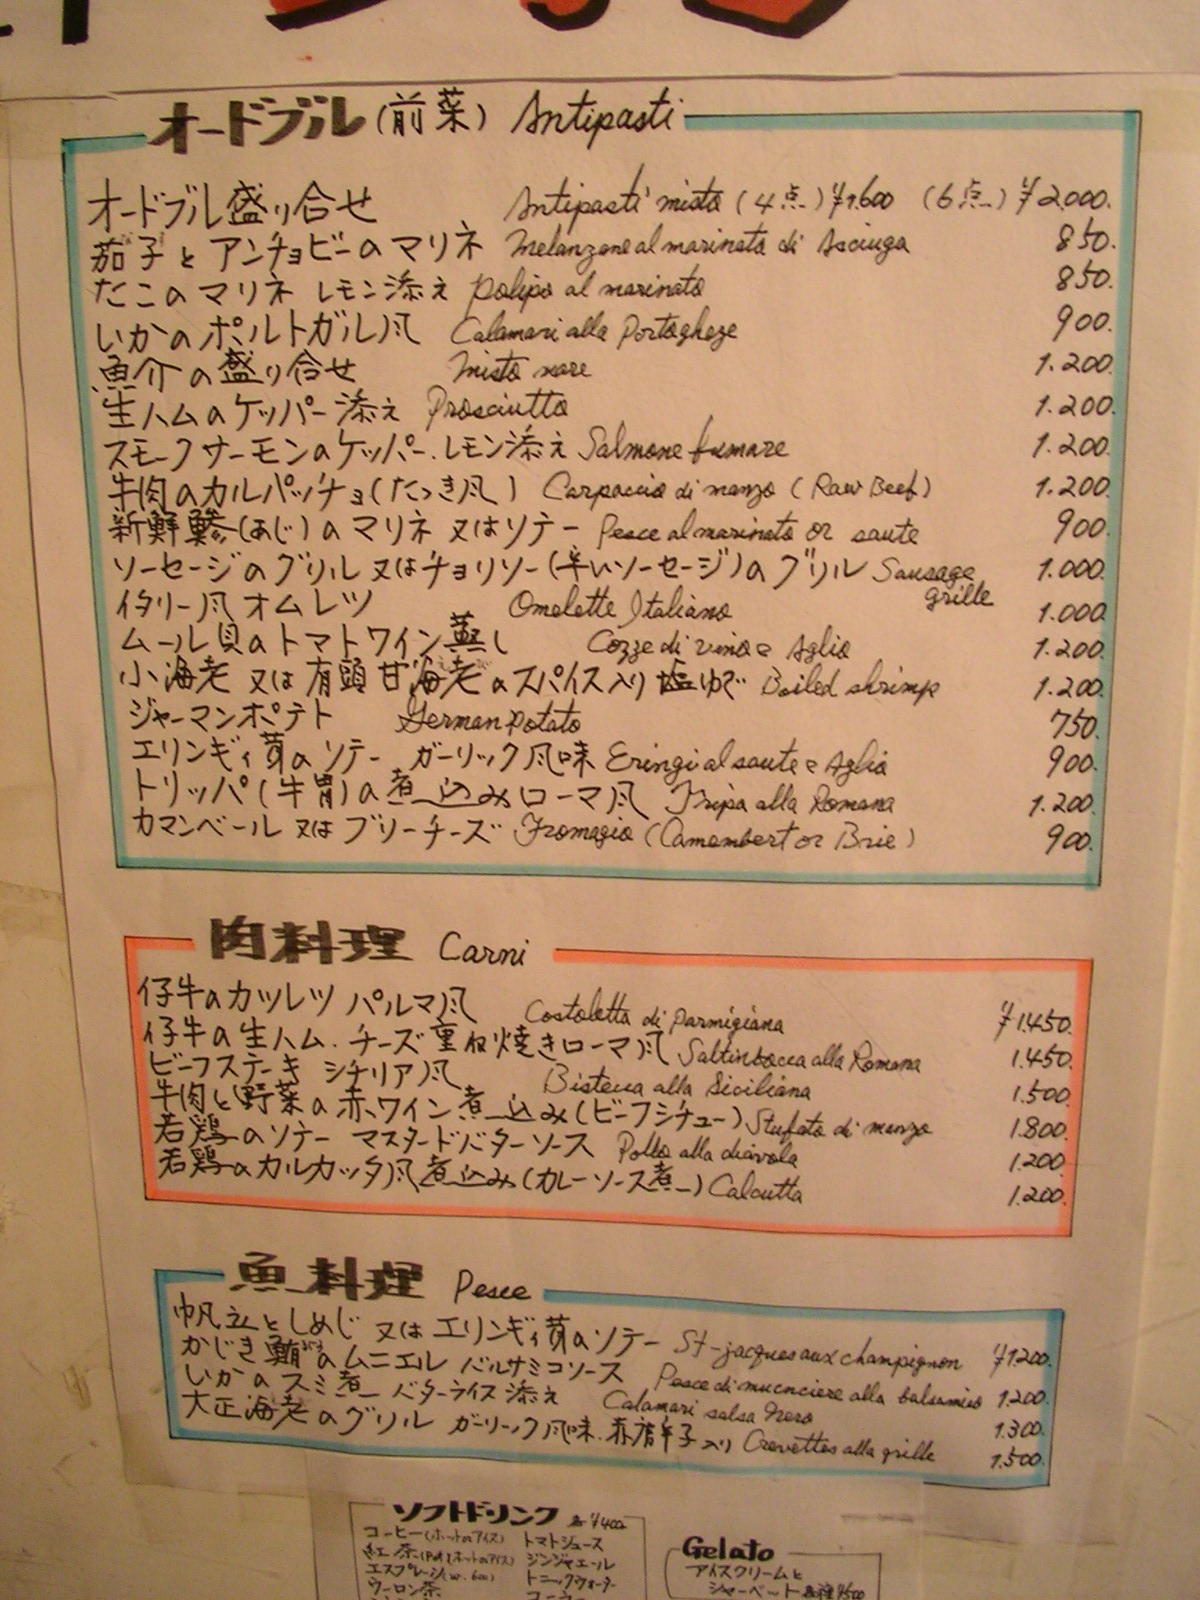 オードブル(前菜) Antipasti
オードブル盛り合せ Antipasti misto (4点)¥1.600 (6点)¥2.000.
茄子とアンチョビーのマリネ Melanzane al marinata di Asciuga 850.
たこのマリネ レモン添え Polipo al marinato 850.
いかのポルトガル風 Calamari alla Portogheze 900.
魚介の盛り合せ Misto mare 1.200.
生ハムのケッパー添え Prosciutto 1.200.
スモークサーモンのケッパー.レモン添え Salmone fumare 1.200.
牛肉のカルパッチョ(たたき風) Carpaccio di manzo (Raw Beef) 1.200.
新鮮鯵(あじ)のマリネ又はソテー Pesce al marinato or saute 900.
ソーセージのグリル又はチョリソー(辛いソーセージ)のグリル Sausage grille 1.000.
イタリー風オムレツ Omelette Italiano 1.000.
ムール貝のトマトワイン蒸し Cozze di vino e Aglio 1.200.
小海老 又は有頭甘海老のスパイス入り塩ゆで Boiled shrimp 1.200.
ジャーマンポテト German potato 750.
エリンギィ茸のソテー ガーリック風味 Eringi al saute e Aglio 900.
トリッパ(牛胃)の煮込みローマ風 Tripa alla Romana 1.200.
カマンベール又はブリーチーズ Fromagio (Camembert or Brie) 900.
肉料理 Carni
仔牛のカツレツ パルマ風 Costoletta di Parmigiana ¥1.450.
仔牛の生ハム.チーズ重ね焼きローマ風 Saltinbocca alla Romana 1.450.
ビーフステーキ シチリア風 Bistecca alla Siciliana 1.500.
牛肉と野菜の赤ワイン煮込み(ビーフシチュー) Stufato di manzo 1.800.
若鶏のソテー マスタードバターソース Pollo alla diavola 1.200.
若鶏のカルカッタ風煮込み(カレーソース煮) Calcutta 1.200.
魚料理 Pesce
帆立としめじ 又はエリンギィ茸のソテー St-jacques aux champignon ¥1.200.
かじき鮪のムニエル バルサミコソース Pesce di mucnciere alla balsamico 1.200.
いかのスミ煮 バターライス添え Calamari salsa Nero 1.300.
大正海老のグリル ガーリック風味.赤唐辛子入り Crevettes alla grille 1.500.
ソフトドリンク 各¥400
コーヒー(ホットorアイス) トマトジュース
紅茶(Pot)(ホットorアイス) ジンジャエール
エスプレーソ トニックウォーター
ウーロン茶
Gelato
アイスクリームと
シャーベット 各種¥500